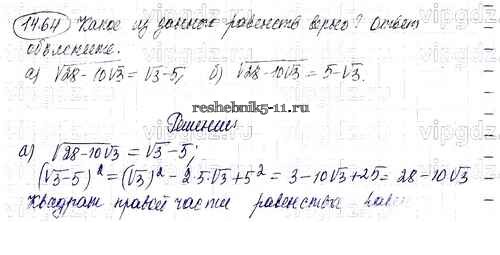 14.64 Какое из данных равенств верно? Ответ
объясните.
а) √28-10√3 = √3-5; б) √28-10√3 = 5-√3.
reshebnik5-11.ru
Решение:
а) √28-10√3 = √3-5;
(√3-5)² = (√3)² - 2·5·√3 + 5² = 3-10√3+25 = 28-10√3
Квадрат правой части равенства равен